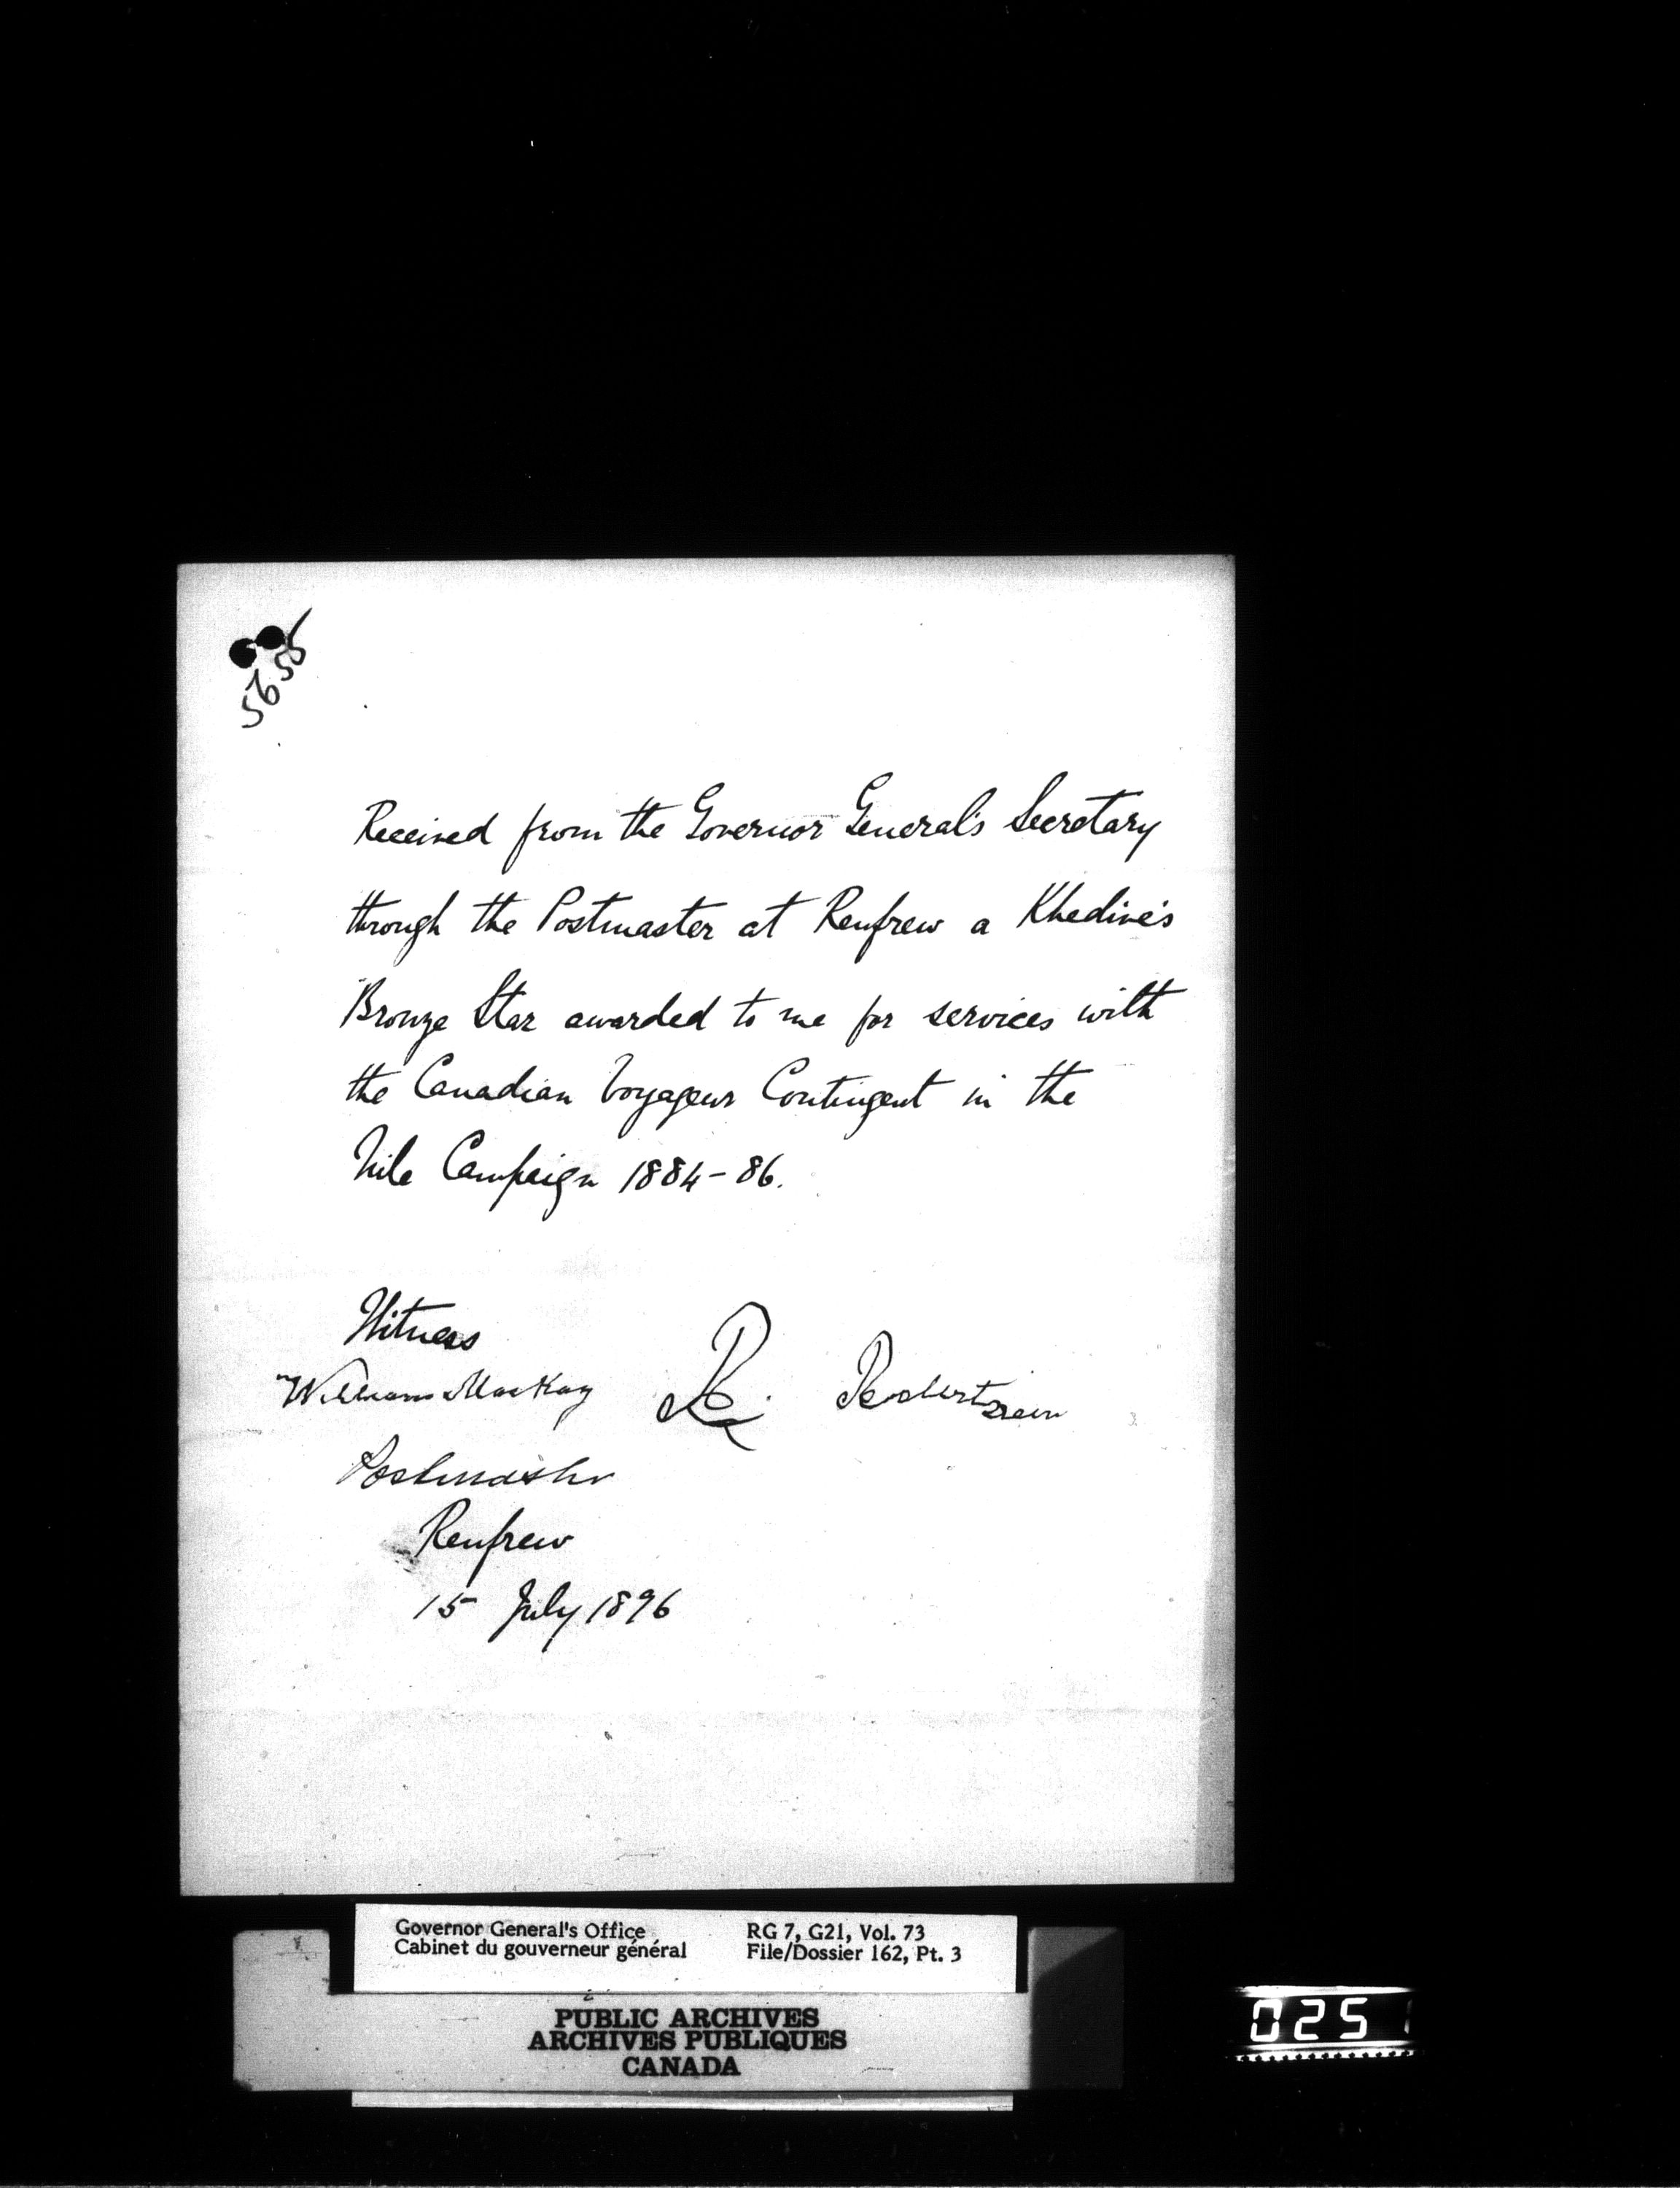 5655
Received from the Governor General's Secretary
through the Postmaster at Renfrew a Khedive's
Bronze Star awarded to me for services with
the Canadian Voyageur Contingent in the
Nile Campaign 1884-86.
Witness
William MacKay R. Robertson
Postmaster
Renfrew
15 July 1896
Governor General's Office RG 7, G21, Vol. 73
Cabinet du gouverneur général File/Dossier 162, Pt. 3
PUBLIC ARCHIVES
ARCHIVES PUBLIQUES
CANADA
025